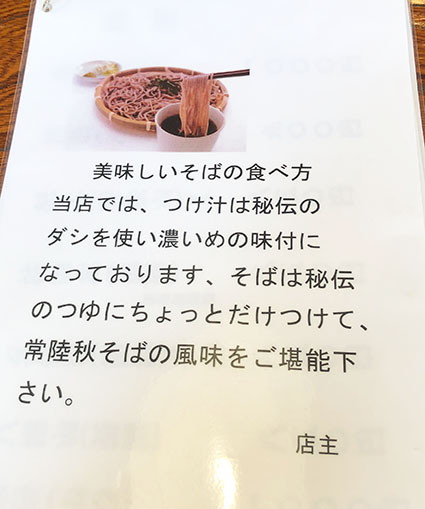 美味しいそばの食べ方
当店では、つけ汁は秘伝の
ダシを使い濃いめの味付に
なっております、そばは秘伝
のつゆにちょっとだけつけて、
常陸秋そばの風味をご堪能下
さい。
店主